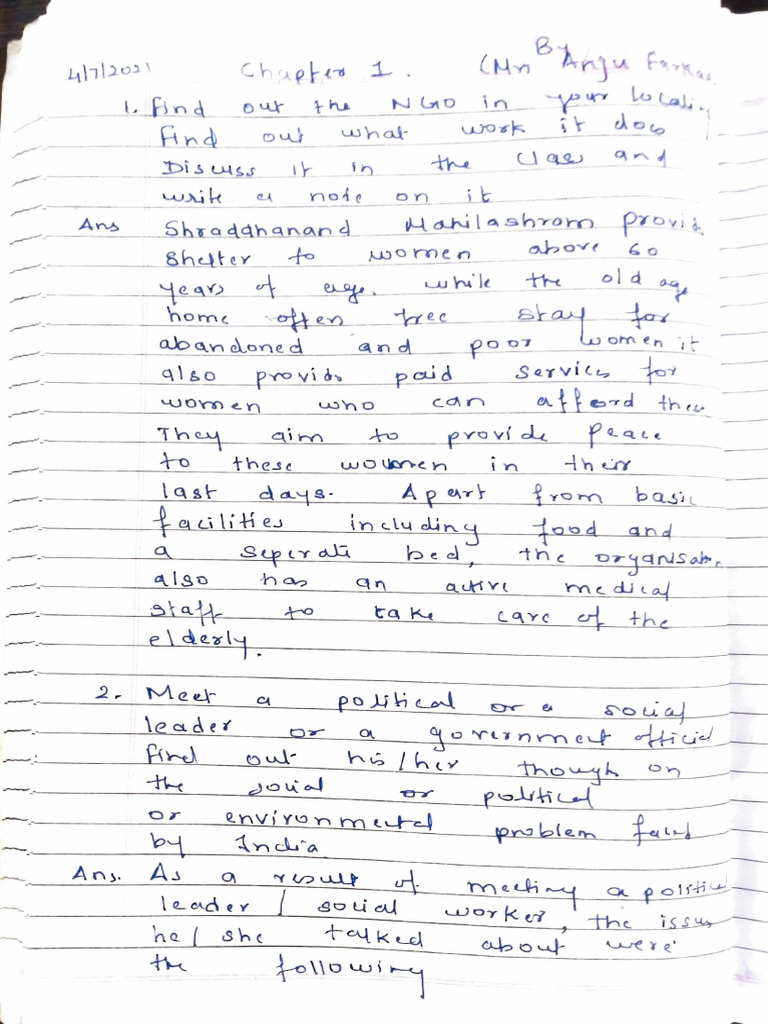 4/7/2021 Chapter 1. (Mn By Anju
1. find out the NGO in your
find out what work it does
Discuss it in the class and
write a note on it
Ans Shraddhanand Mahilashram
shelter to women above 60
years of age. while the old age
home often free stay for
abandoned and poor women it
also provids paid services for
women who can afford
They aim to provide peace
to these women in their
last days. Apart from basic
facilities including food and
a seperate bed, the
also has an active medical
staff to take care of the
elderly.
2. Meet a political or a social
leader or a government official
find out his/her though on
the social or political
or environmental problem faced
by India
Ans. As a result of meeting a political
leader / social worker, the issues
he / she talked about were
the following